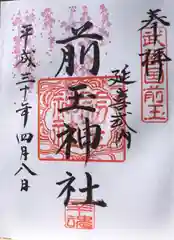 奉拝
武蔵国
前玉
延喜式内
前玉神社
平成三十年四月八日